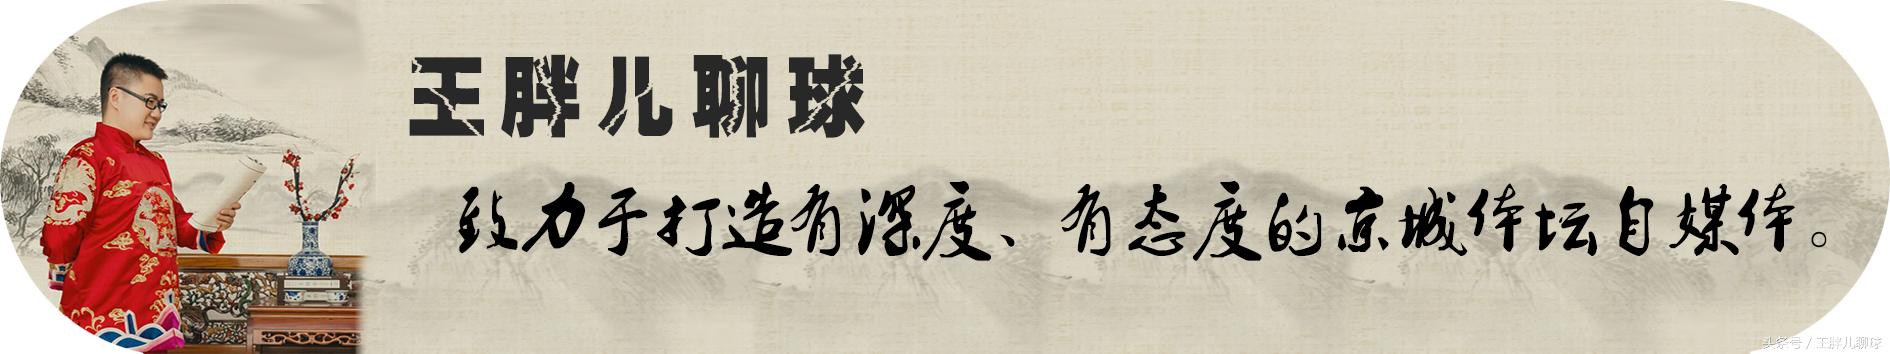 王胖儿聊球
致力于打造有深度、有态度的京城体坛自媒体。
头条号 / 王胖儿聊球